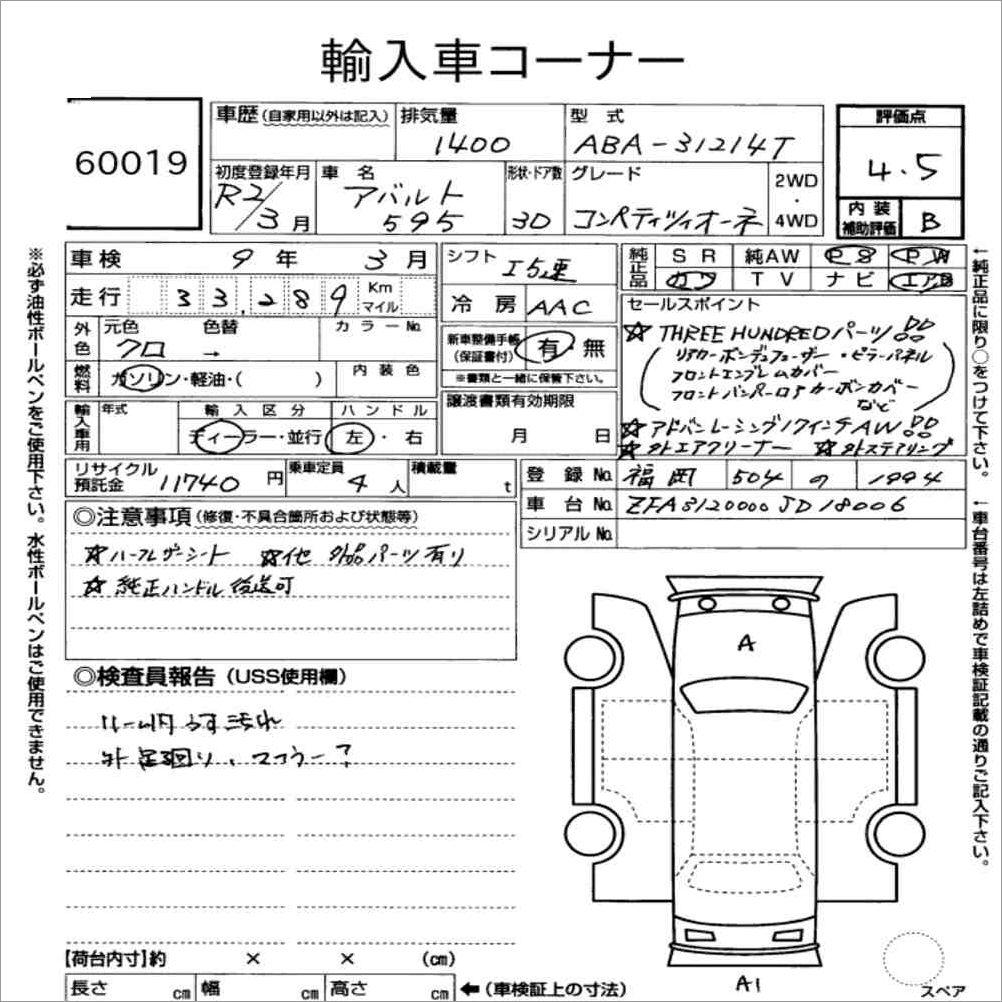 輸入車コーナー
60019
車歴 (自家用以外は記入)
排気量
1400
型 式
ABA-31214T
評価点
4.5
初度登録年月
R2/3月
車 名
アバルト
595
形状・ドア数
3D
グレード
コンペティツィオーネ
2WD
・
4WD
内 装
補助評価
B
車検 9年 3月
走行 33,289 Km
マイル
外色
元色 色替 カラーNo.
クロ →
燃料
ガソリン・軽油・( )
内 装 色
輸入車用
年式
輸 入 区 分
ディーラー・並行
ハ ン ド ル
左・右
シフト
I5速
冷 房 AAC
新車整備手帳
(保証書付)
有・無
※書類と一緒に保管下さい。
譲渡書類有効期限
月 日
純正品
SR 純AW PS PW
カワ TV ナビ エアB
セールスポイント
☆ THREE HUNDREDパーツ!!
(リアカーボンデュフューザー・ピラーパネル
フロントエンブレムカバー
フロントバンパーロアカーボンカバー
など)
☆アドバンレーシング17インチAW!!
☆外エアクリーナー ☆外ステアリング
リサイクル
預託金
11740円
乗車定員
4人
積載量
t
登 録 No. 福岡 504 の 1994
車 台 No. ZFA3120000JD18006
シリアルNo.
◎注意事項 (修復・不具合箇所および状態等)
☆ハーフレザーシート ☆他 外品パーツ有り
☆純正ハンドル後送可
◎検査員報告 (USS使用欄)
ルーム内うす汚れ
外足廻り、マフラー?
A
A1
スペア
【荷台内寸】約 × × (cm)
長さ cm 幅 cm 高さ cm ←(車検証上の寸法)
※必ず油性ボールペンをご使用下さい。水性ボールペンはご使用できません。
←純正品に限り○をつけて下さい。
←車台番号は左詰めで車検証記載の通りご記入下さい。